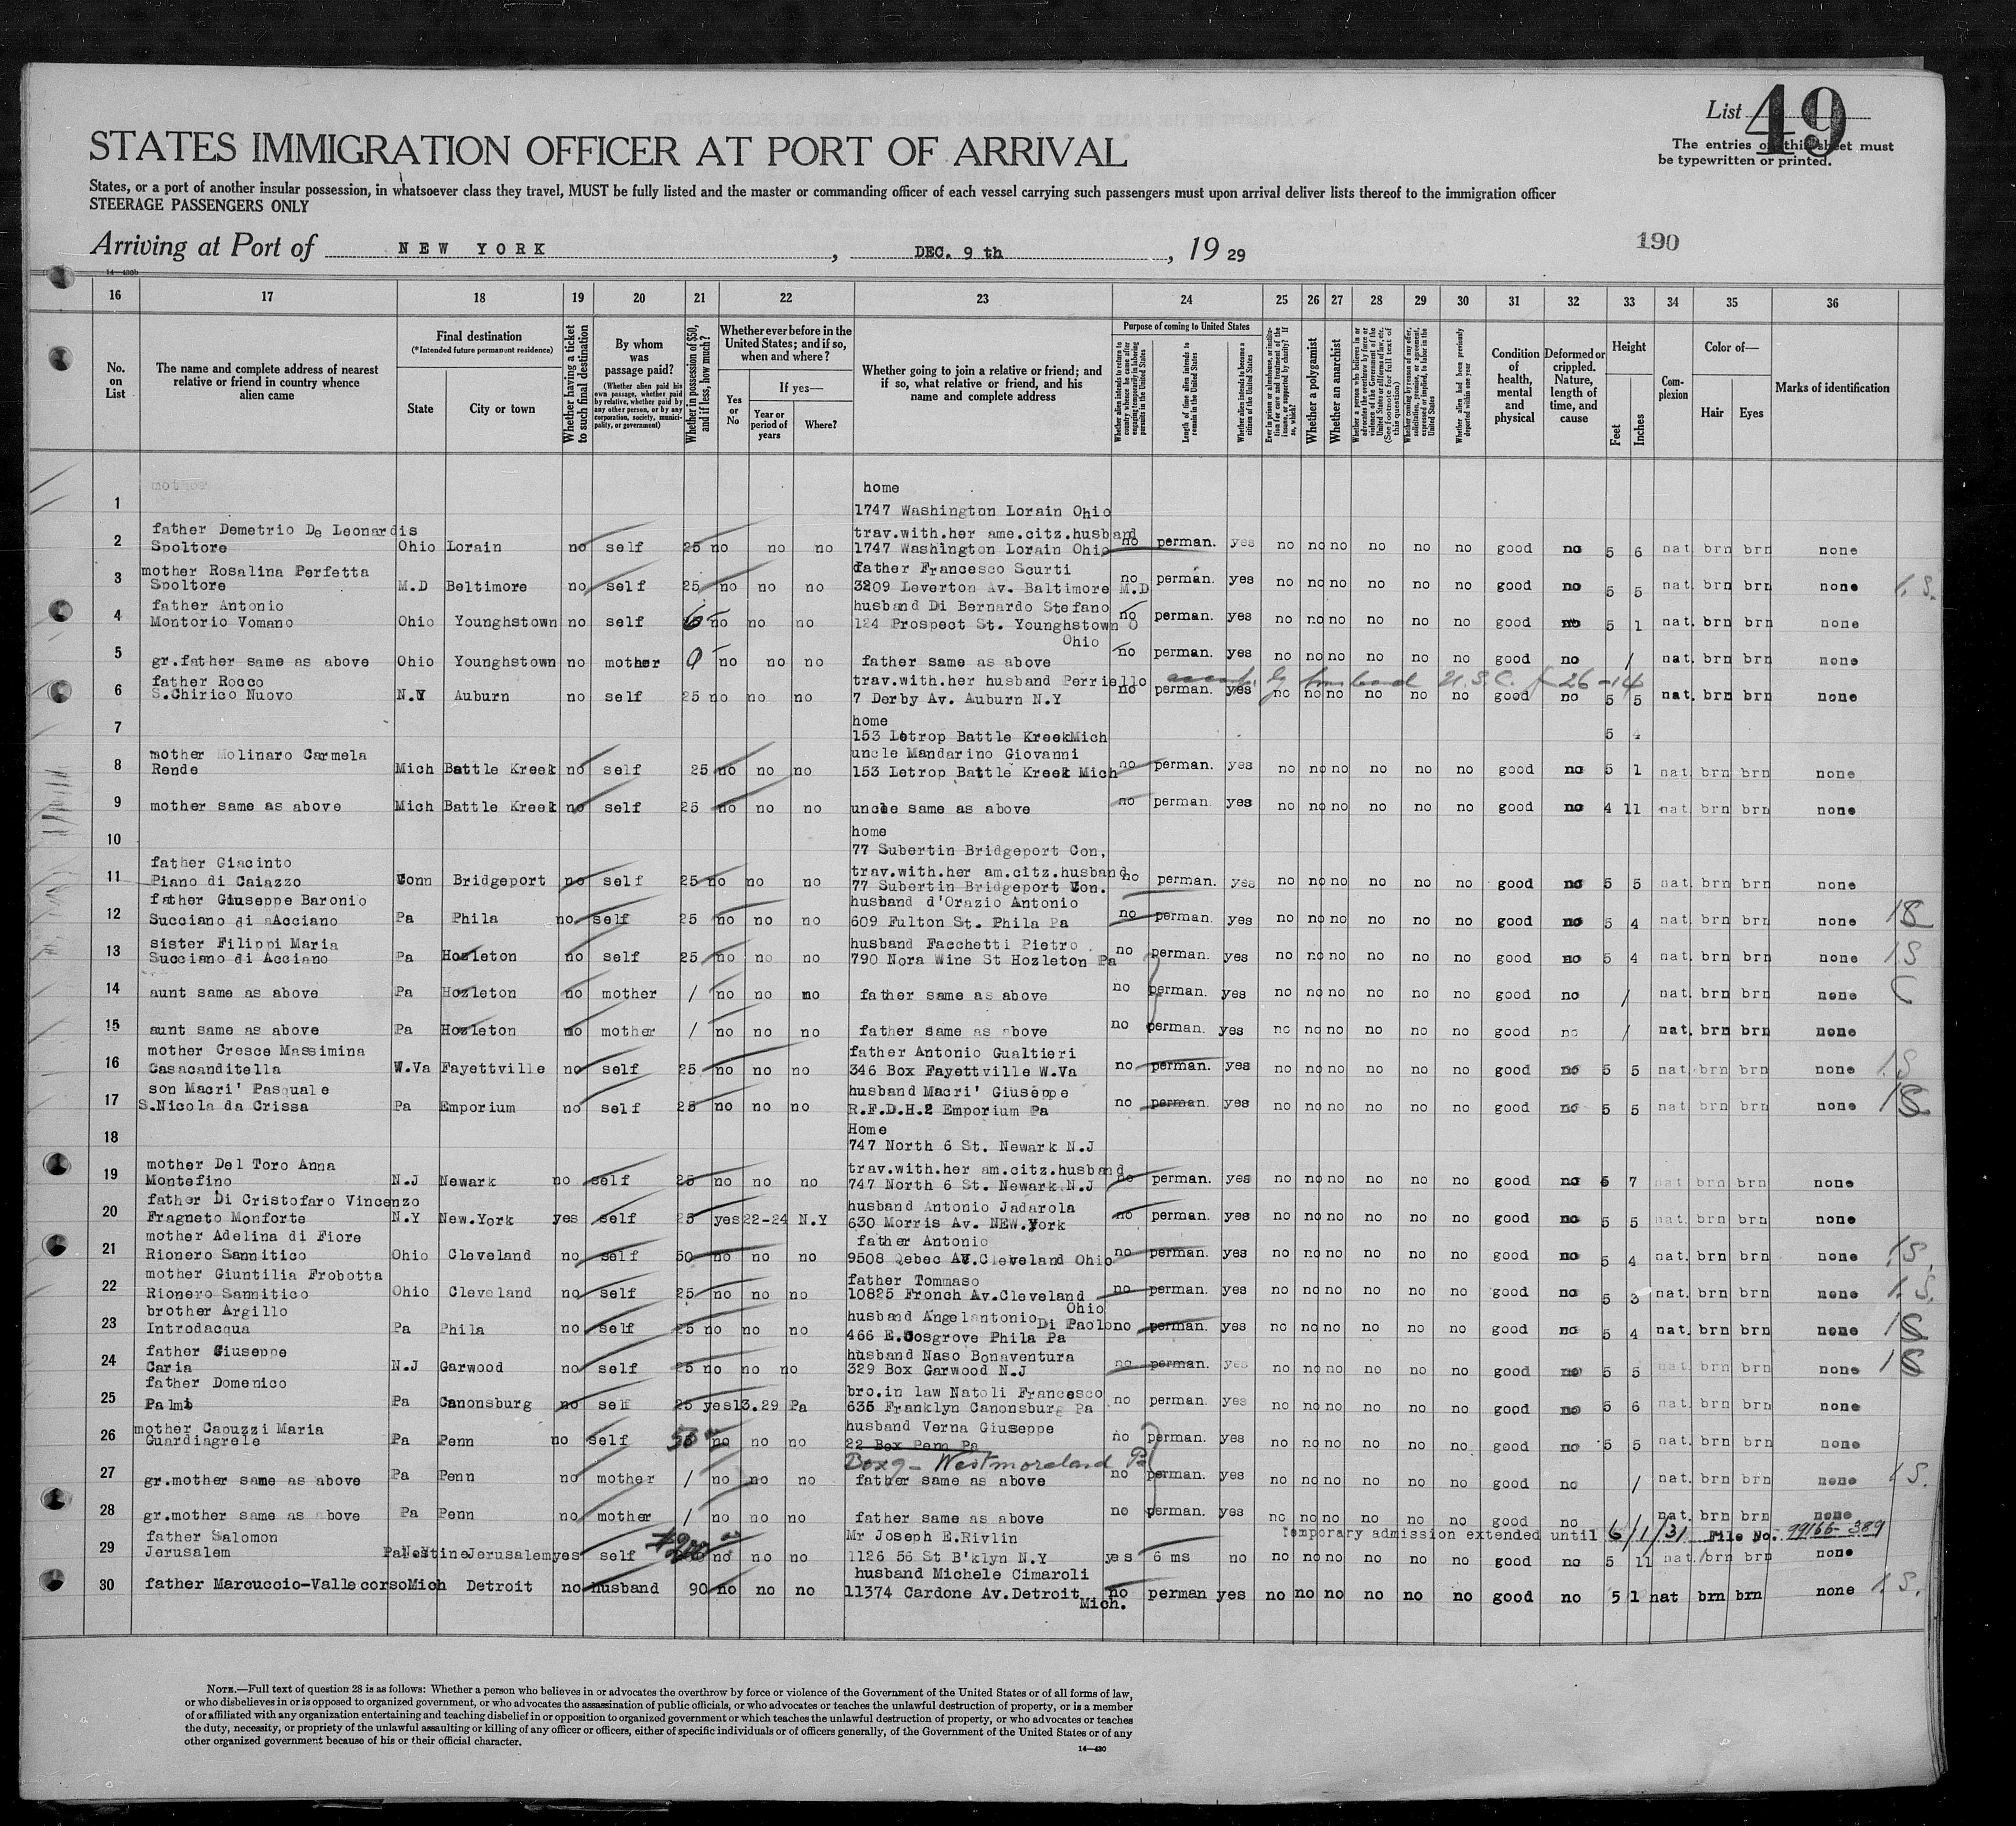 List 49
The entries on this sheet must
be typewritten or printed.
STATES IMMIGRATION OFFICER AT PORT OF ARRIVAL
States, or a port of another insular possession, in whatsoever class they travel, MUST be fully listed and the master or commanding officer of each vessel carrying such passengers must upon arrival deliver lists thereof to the immigration officer
STEERAGE PASSENGERS ONLY
Arriving at Port of NEW YORK , DEC. 9 th , 19 29
190
14—430b
16 17 18 19 20 21 22 23 24 25 26 27 28 29 30 31 32 33 34 35 36
No. on List
The name and complete address of nearest relative or friend in country whence alien came
Final destination
(*Intended future permanent residence)
State
City or town
Whether having a ticket to such final destination
By whom was passage paid?
(Whether alien paid his own passage, whether paid by relative, whether paid by any other person, or by any corporation, society, municipality, or government)
Whether in possession of $50, and if less, how much?
Whether ever before in the United States; and if so, when and where?
Yes or No
If yes—
Year or period of years
Where?
Whether going to join a relative or friend; and if so, what relative or friend, and his name and complete address
Purpose of coming to United States
Whether alien intends to return to country whence he came after engaging temporarily in laboring pursuits in the United States
Length of time alien intends to remain in the United States
Whether alien intends to become a citizen of the United States
Ever in prison or almshouse, or institution for care and treatment of the insane, or supported by charity? If so, which?
Whether a polygamist
Whether an anarchist
Whether a person who believes in or advocates the overthrow by force or violence of the Government of the United States or all forms of law, etc. (See footnote for full text of this question)
Whether coming by reason of any offer, solicitation, promise, or agreement, expressed or implied, to labor in the United States
Whether alien had been previously deported within one year
Condition of health, mental and physical
Deformed or crippled. Nature, length of time, and cause
Height
Feet
Inches
Complexion
Color of—
Hair
Eyes
Marks of identification
1 mother home
1747 Washington Lorain Ohio
2 father Demetrio De Leonardis trav.with.her ame.citz.husband
Spoltore Ohio Lorain no self 25 no no no 1747 Washington Lorain Ohio no perman. yes no no no no no no good no 5 6 nat. brn brn none
3 mother Rosalina Perfetta father Francesco Scurti
Spoltore M.D Beltimore no self 25 no no no 3209 Leverton Av. Baltimore M.D no perman. yes no no no no no no good no 5 5 nat. brn brn none 1.S.
4 father Antonio husband Di Bernardo Stefano
Montorio Vomano Ohio Younghstown no self no no no 124 Prospect St. Younghstown O no perman. yes no no no no no no good no 5 1 nat. brn brn none
Ohio
5 gr.father same as above Ohio Younghstown no mother 0 no no no father same as above no perman. yes no no no no no no good no / nat. brn brn none
6 father Rocco trav.with.her husband Perriello husband U.S.C. 26-14
S.Chirico Nuovo N.Y Auburn no self 25 no no no 7 Derby Av. Auburn N.Y no perman. yes no no no no no no good no 5 5 nat. brn brn none
7 home
153 Letrop Battle KreekMich 5 4
8 mother Molinaro Carmela uncle Mandarino Giovanni
Rende Mich Battle Kreek no self 25 no no no 153 Letrop Battle Kreek Mich no perman. yes no no no no no no good no 5 1 nat. brn brn none
9 mother same as above Mich Battle Kreek no self 25 no no no uncle same as above no perman. yes no no no no no no good no 4 11 nat. brn brn none
10 home
77 Subertin Bridgeport Con,
11 father Giacinto trav.with.her am.citz.husband
Piano di Caiazzo Conn Bridgeport no self 25 no no no 77 Subertin Bridgeport Con. no perman. yes no no no no no no good no 5 5 nat. brn brn none
12 father Giuseppe Baronio husband d'Orazio Antonio
Succiano di aAcciano Pa Phila no self 25 no no no 609 Fulton St. Phila Pa no perman. yes no no no no no no good no 5 4 nat. brn brn none 1S
13 sister Filippi Maria husband Facchetti Pietro
Succiano di Acciano Pa Hozleton no self 25 no no no 790 Nora Wine St Hozleton Pa no perman. yes no no no no no no good no 5 4 nat. brn brn none 1S
14 aunt same as above Pa Hozleton no mother / no no no father same as above no perman. yes no no no no no no good no / nat. brn brn none
15 aunt same as above Pa Hozleton no mother / no no no father same as above no perman. yes no no no no no no good no / nat. brn brn none
16 mother Cresce Massimina father Antonio Gualtieri
Casacanditella W.Va Fayettville no self 25 no no no 346 Box Fayettville W.Va no perman. yes no no no no no no good no 5 5 nat. brn brn none 1S
17 son Macri' Pasquale husband Macri' Giuseppe
S.Nicola da Crissa Pa Emporium no self 25 no no no R.F.D.H.2 Emporium Pa no perman. yes no no no no no no good no 5 5 nat brn brn none 1S
18 Home
747 North 6 St. Newark N.J
19 mother Del Toro Anna trav.with.her am.citz.husband
Montefino N.J Newark no self 25 no no no 747 North 6 St. Newark N.J no perman. yes no no no no no no good no 5 7 nat brn brn none
20 father Di Cristofaro Vincenzo husband Antonio Jadarola
Fragneto Monforte N.Y New.York yes self 25 yes 22-24 N.Y 630 Morris Av. NEW.York no perman. yes no no no no no no good no 5 5 nat. brn brn none
21 mother Adelina di Fiore father Antonio
Rionero Sannitico Ohio Cleveland no self 50 no no no 9508 Qebec AV.Cleveland Ohio no perman. yes no no no no no no good no 5 4 nat. brn brn none 1.S.
22 mother Giuntilia Frobotta father Tommaso
Rionero Sannitico Ohio Cleveland no self 25 no no no 10825 Fronch Av.Cleveland no perman. yes no no no no no no good no 5 3 nat. brn brn none 1.S.
Ohio
23 brother Argillo husband Angelantonio Di Paolo
Introdacqua Pa Phila no self 25 no no no 466 E.Cosgrove Phila Pa no perman. yes no no no no no no good no 5 4 nat. brn brn none 1S
24 father Giuseppe husband Naso Bonaventura
Caria N.J Garwood no self 25 no no no 329 Box Garwood N.J no perman. yes no no no no no no good no 5 5 nat. brn brn none 1S
25 father Domenico bro.in law Natoli Francesco
Palmi Pa Canonsburg no self 25 yes 13.29 Pa 635 Franklyn Canonsburg Pa no perman. yes no no no no no no good no 5 6 nat. brn brn none
26 mother Capuzzi Maria husband Verna Giuseppe
Guardiagrele Pa Penn no self 50 no no no 22 Box Penn Pa no perman. yes no no no no no no good no 5 5 nat. brn brn none
Box 9 - Westmoreland Pa
27 gr.mother same as above Pa Penn no mother / no no no father same as above no perman. yes no no no no no no good no / nat. brn brn none 1S.
28 gr.mother same as above Pa Penn no mother / no no no father same as above no perman. yes no no no no no no good no nat. brn brn none
29 father Salomon Mr Joseph E.Rivlin Temporary admission extended until 6/1/31 File No. 99166-389
Jerusalem Palestine Jerusalem yes self $200 no no no 1126 56 St B'klyn N.Y yes 6 ms no no no no no no no good no 5 11 nat brn brn none
30 father Marcuccio-Vallecorso Mich Detroit no husband 90 no no no husband Michele Cimaroli
11374 Cardone Av.Detroit Mich. no perman yes no no no no no no good no 5 1 nat brn brn none 1.S.
NOTE.—Full text of question 28 is as follows: Whether a person who believes in or advocates the overthrow by force or violence of the Government of the United States or of all forms of law,
or who disbelieves in or is opposed to organized government, or who advocates the assassination of public officials, or who advocates or teaches the unlawful destruction of property, or is a member
of or affiliated with any organization entertaining and teaching disbelief in or opposition to organized government or which teaches the unlawful destruction of property, or who advocates or teaches
the duty, necessity, or propriety of the unlawful assaulting or killing of any officer or officers, either of specific individuals or of officers generally, of the Government of the United States or of any
other organized government because of his or their official character.
14—430